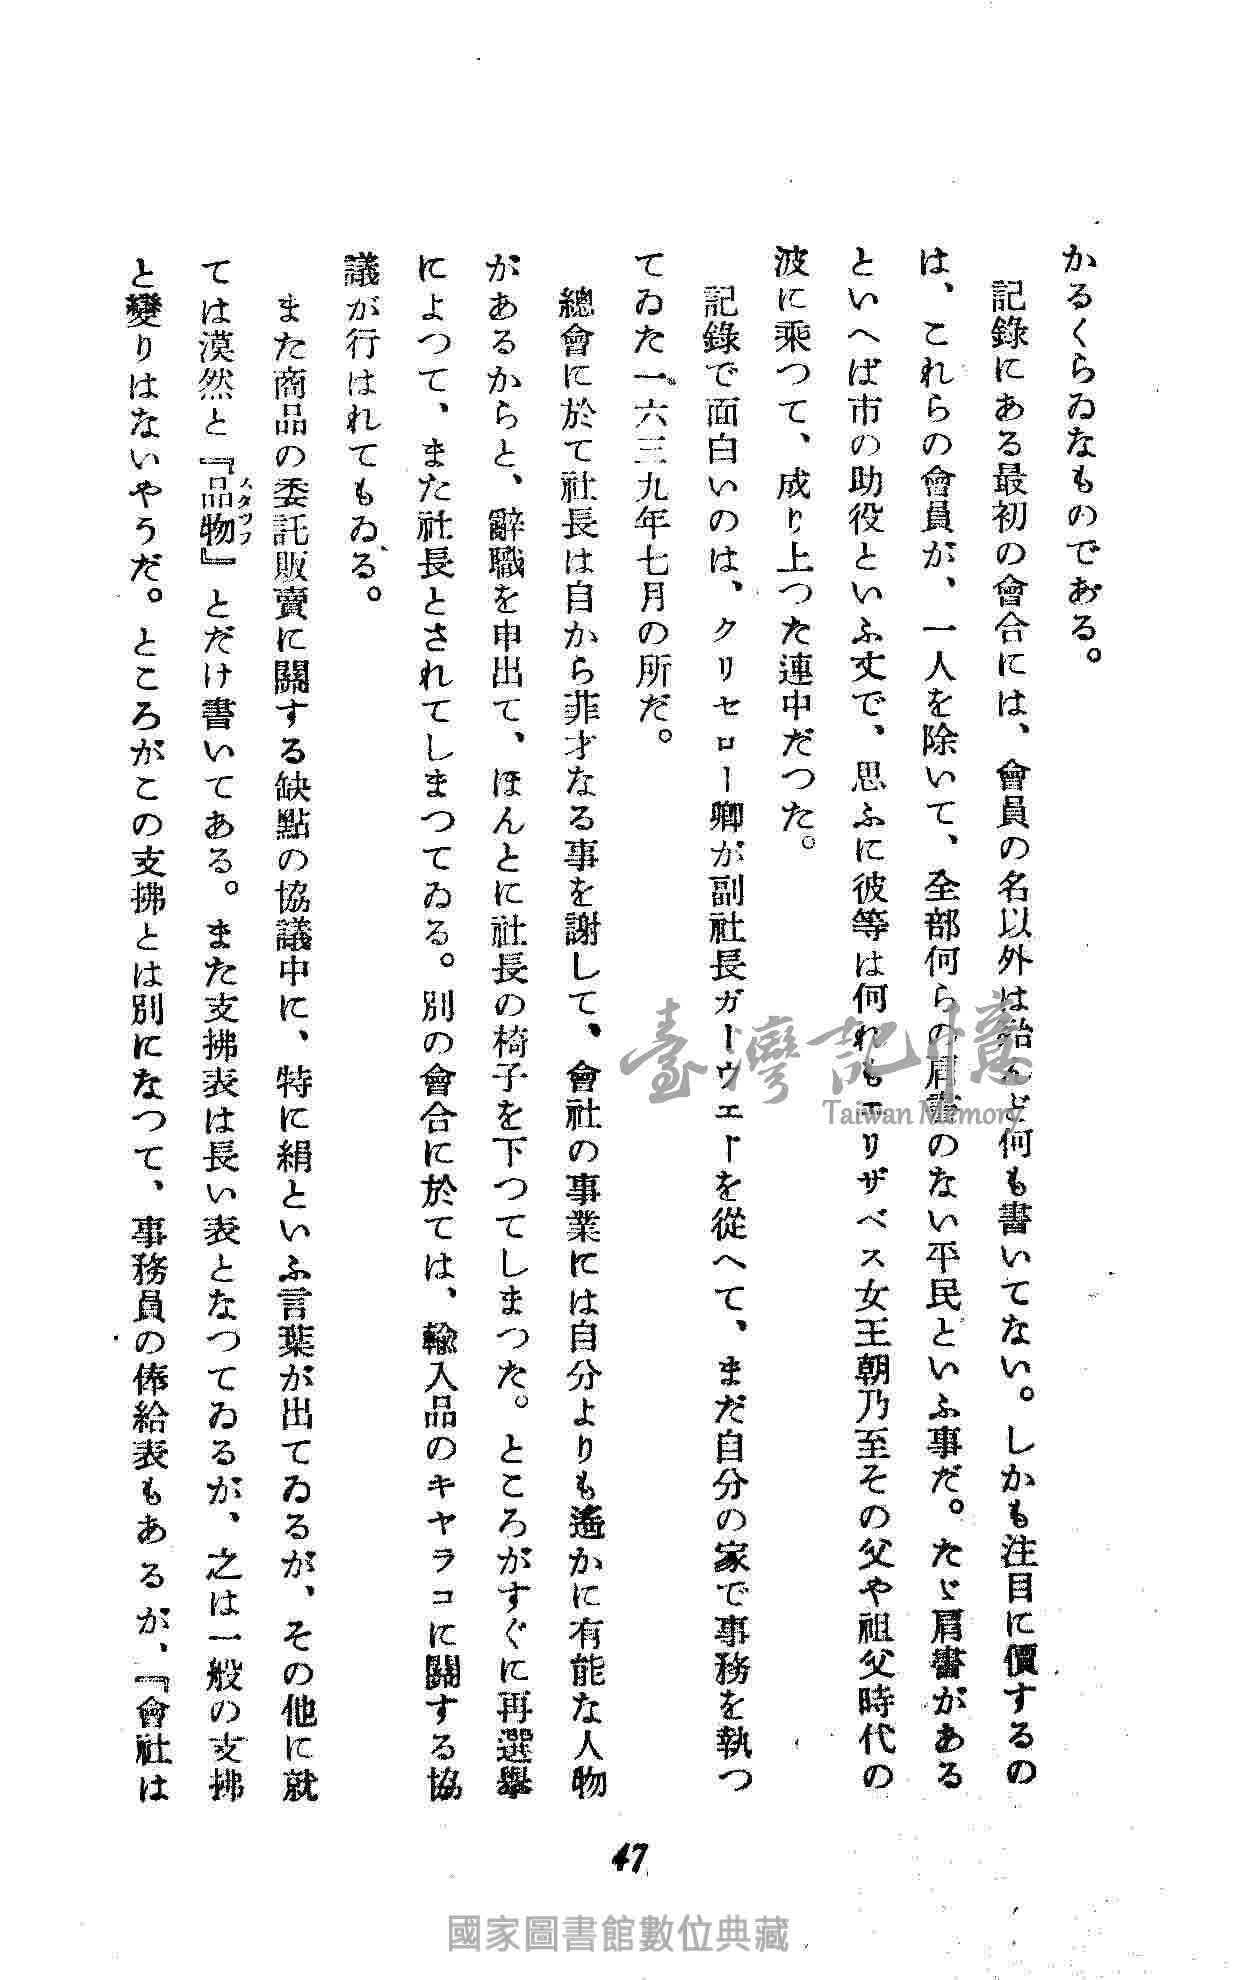 かるくらゐなものである。
記錄にある最初の會合には、會員の名以外は殆んど何も書いてない。しかも注目に價するの
は、これらの會員が、一人を除いて、全部何らの肩書のない平民といふ事だ。たゞ肩書がある
といへば市の助役といふ丈で、思ふに彼等は何れもエリザベス女王朝乃至その父や祖父時代の
波に乘つて、成り上つた連中だつた。
記錄で面白いのは、クリセロー卿が副社長ガーウエーを從へて、まだ自分の家で事務を執つ
てゐた一六三九年七月の所だ。
總會に於て社長は自から菲才なる事を謝して、會社の事業には自分よりも遙かに有能な人物
があるからと、辭職を申出て、ほんとに社長の椅子を下つてしまつた。ところがすぐに再選擧
によつて、また社長とされてしまつてゐる。別の會合に於ては、輸入品のキヤラコに關する協
議が行はれてもゐる。
また商品の委託販賣に關する缺點の協議中に、特に絹といふ言葉が出てゐるが、その他に就
ては漠然と『品物』とだけ書いてある。また支拂表は長い表となつてゐるが、之は一般の支拂
スタツフ
と變りはないやうだ。ところがこの支拂とは別になつて、事務員の俸給表もあるが、『會社は
47
臺灣記憶
Taiwan Memory
國家圖書館數位典藏